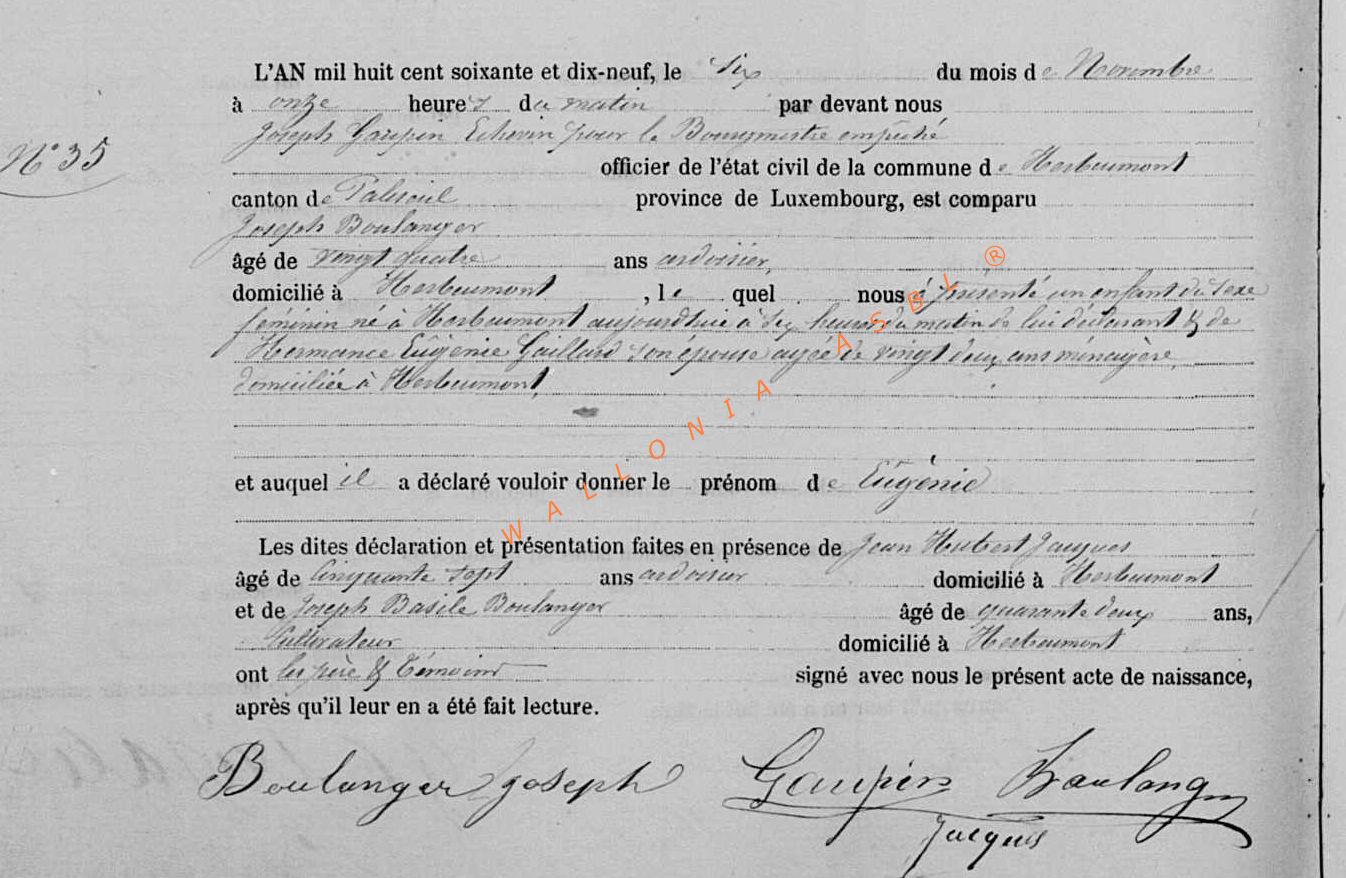 L'AN mil huit cent soixante et dix-neuf, le six du mois de Novembre
à onze heures du matin par devant nous
Joseph Gaupin Echevin pour le Bourgmestre empêché
N° 35
officier de l'état civil de la commune de Herbeumont
canton de Paliseul province de Luxembourg, est comparu
Joseph Boulanger
âgé de vingt quatre ans ardoisier,
domicilié à Herbeumont, lequel nous a présenté un enfant du sexe
féminin né à Herbeumont aujourd'hui à six heures du matin de lui déclarant & de
Hermance Eugénie Gaillard son épouse agée de vingt deux ans ménagère,
domiciliée à Herbeumont,
WALLONIA ASBL ®
et auquel il a déclaré vouloir donner le prénom de Eugénie
Les dites déclaration et présentation faites en présence de Jean Hubert Jacques
âgé de cinquante sept ans ardoisier domicilié à Herbeumont
et de Joseph Basile Boulanger âgé de quarante deux ans,
Cultivateur domicilié à Herbeumont
ont les père & témoins signé avec nous le présent acte de naissance,
après qu'il leur en a été fait lecture.
Boulanger Joseph Gaupin Boulanger
Jacques